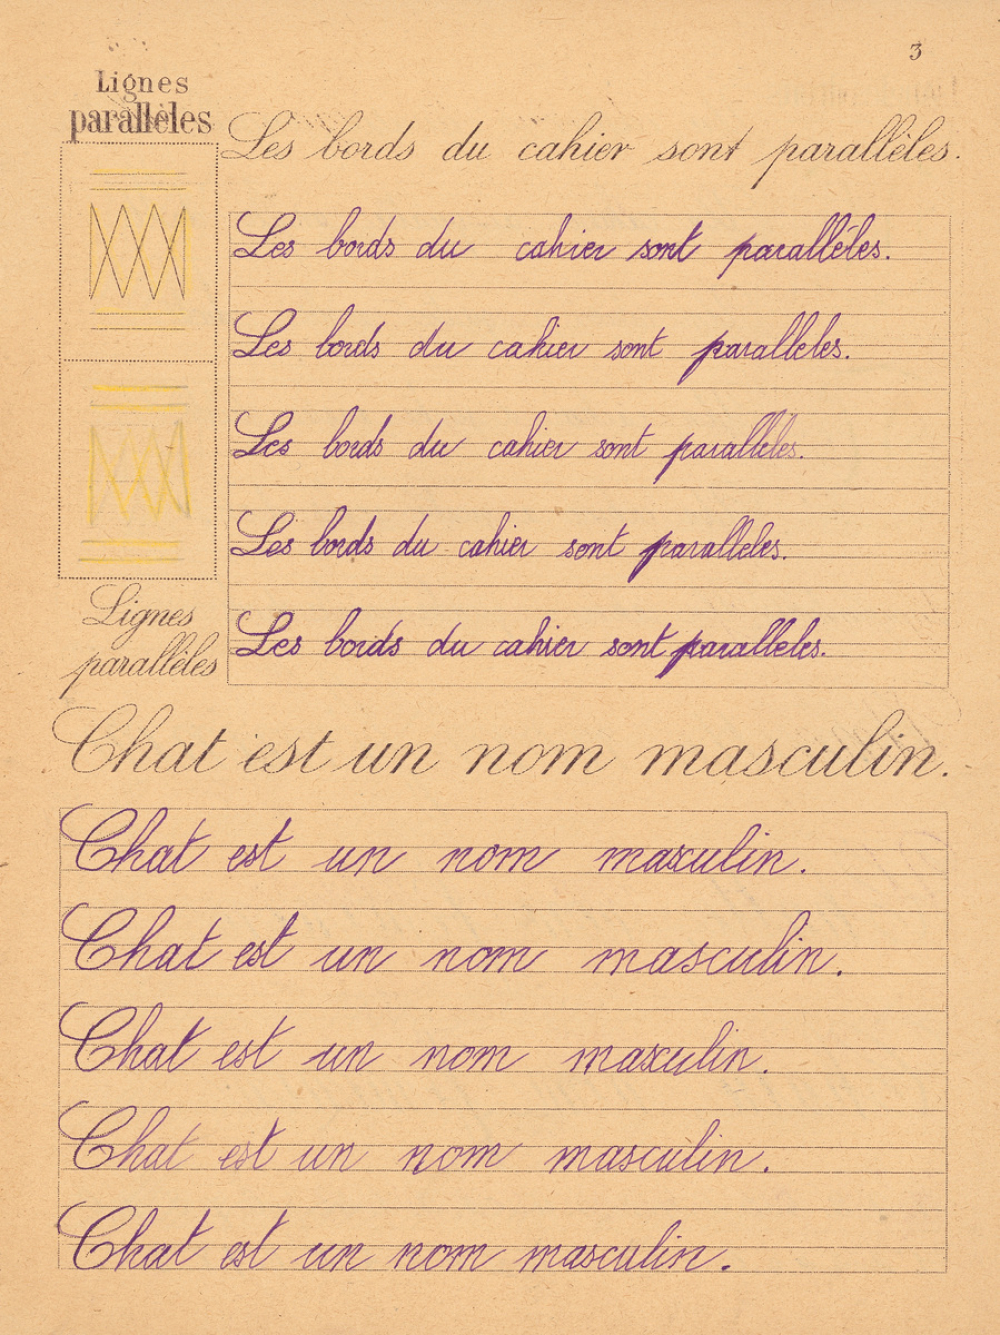 3
Lignes
parallèles
Les bords du cahier sont parallèles.
Les bords du cahier sont parallèles.
Les bords du cahier sont paralleles.
Les bords du cahier sont parallèles.
Les bords du cahier sont paralleles.
Les bords du cahier sont paralleles.
Lignes
parallèles
Chat est un nom masculin.
Chat est un nom masculin.
Chat est un nom masculin.
Chat est un nom masculin.
Chat est un nom masculin.
Chat est un nom masculin.